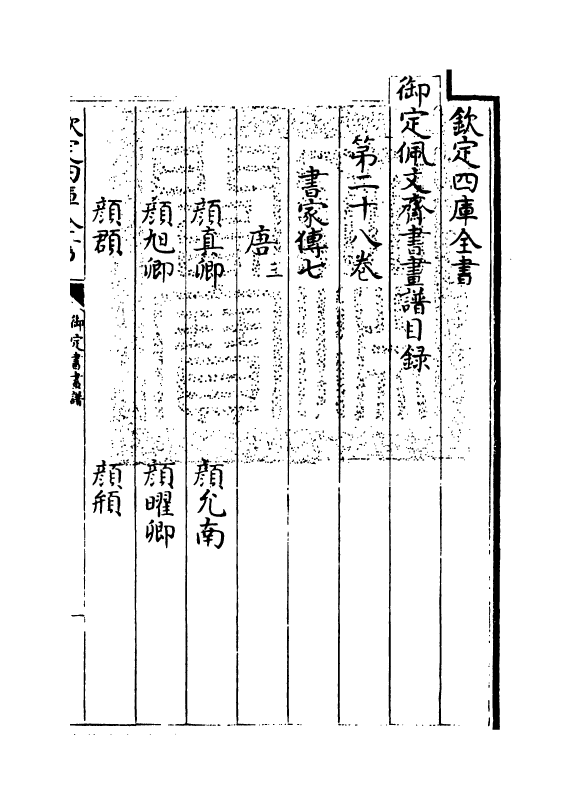 欽定四庫全書
御定佩文齋書畫譜目録
第二十八卷
書家傳七
唐三
顔真卿 顔允南
顔旭卿 顔曜卿
顔頵 顔頩
御定書畫譜
一